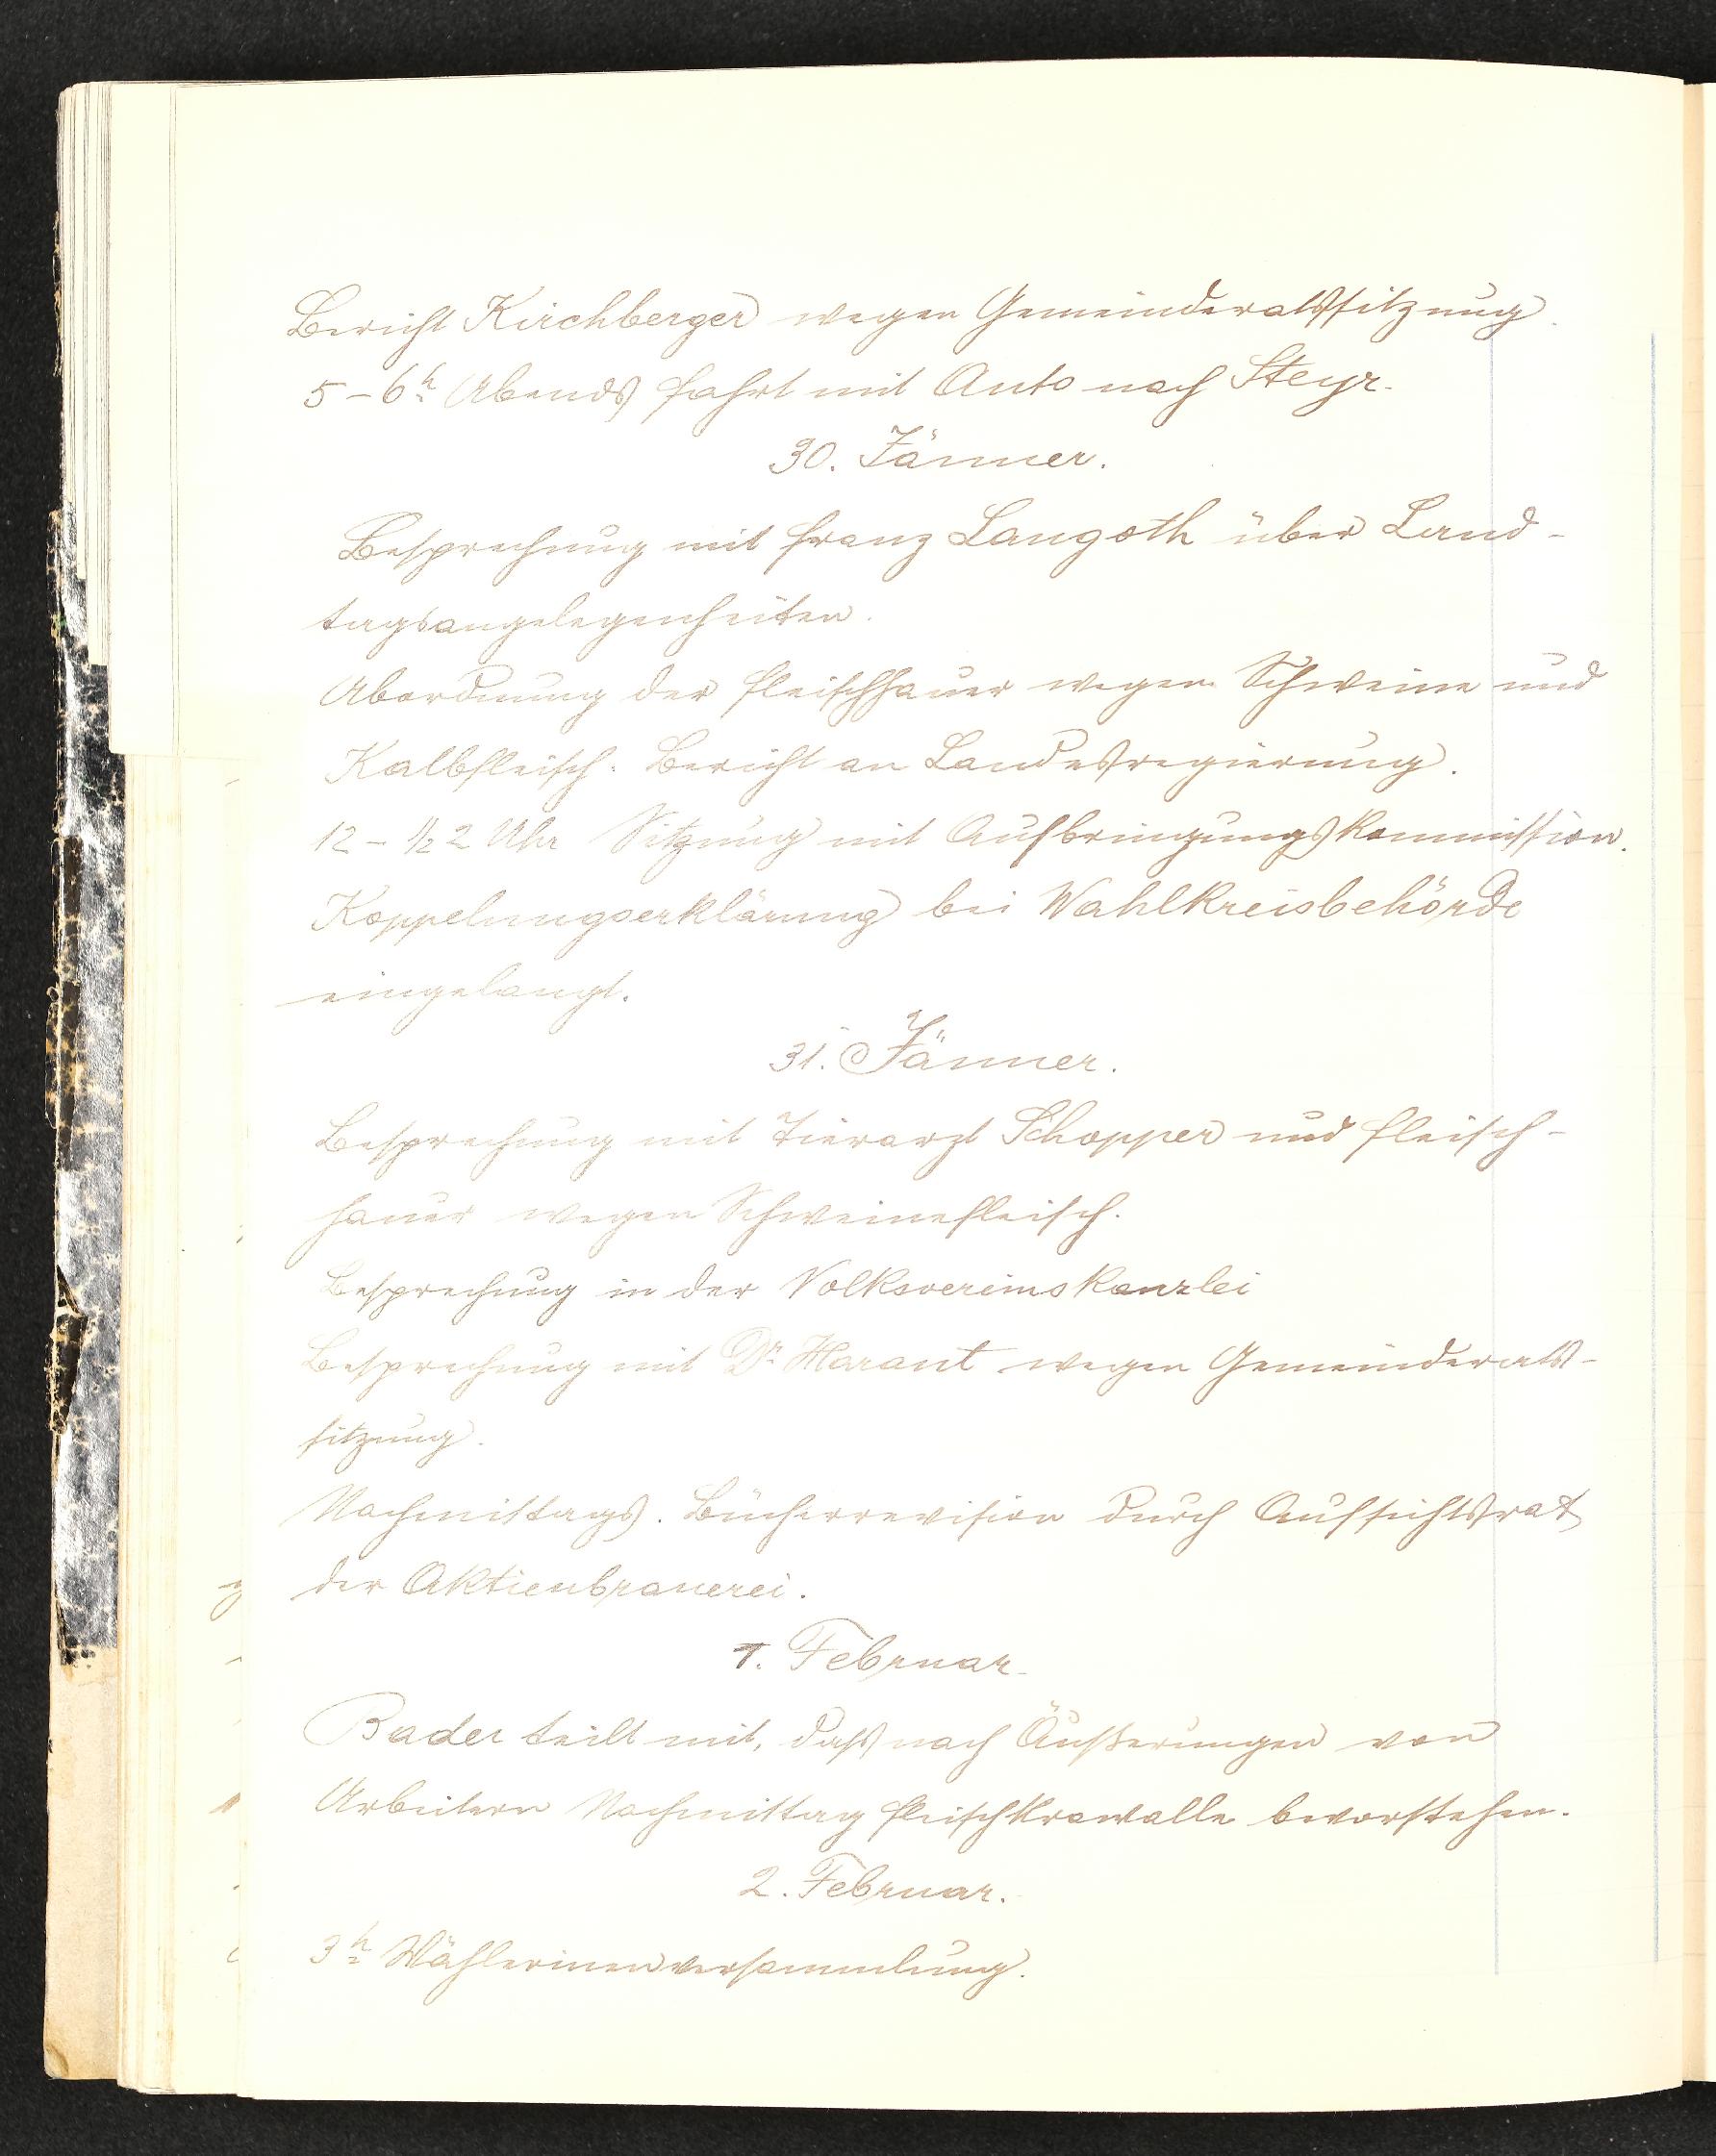 Bericht Kirchberger wegen Gemeinderatssitzung.
5-6h Abends Fahrt mit Auto nach Steyr.
30. Jänner.
Besprechung mit Franz Langoth über Land-
tagsangelegenheiten.
Abordnung der Fleischhauer wegen Schweine und
Kalbfleisch. Bericht an Landesregierung.
12-½2 Uhr Sitzung mit Aufbringungskommission.
Koppelungserklärung bei Wahlkreisbehörde
eingelangt.
31. Jänner.
Besprechung mit Tierarzt Schopper und Fleisch-
hauer wegen Schweinefleisch.
Besprechung in der Volksvereinskanzlei
Besprechung mit Dr. Harant wegen Gemeinderats-
sitzung.
Nachmittags. Bücherrevision durch Aufsichtsrat
der Aktienbrauerei.
1. Februar.
Bader teilt mit, daß nach Äußerungen von
Arbeitern Nachmittag Fleischkrawalle bevorstehen.
2. Februar.
3h Wählerinenversammlung.